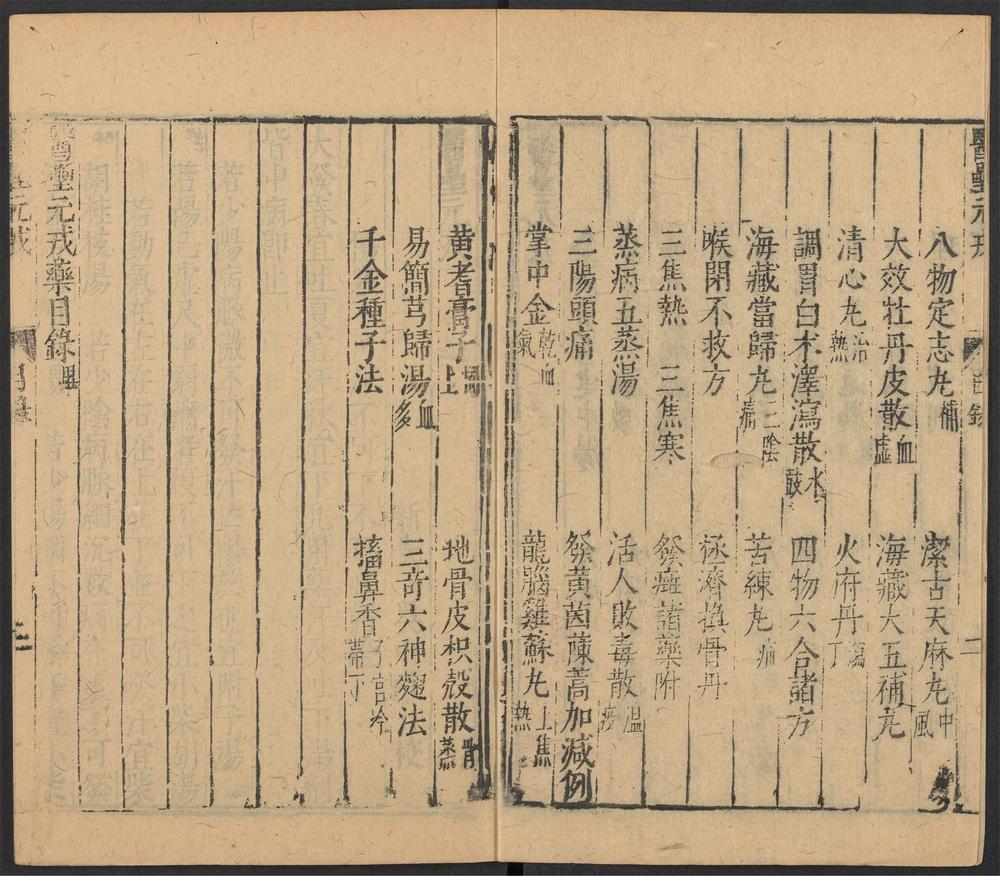 醫壘元戎 目錄 二
八物定志丸補 潔古天麻丸中風
大效牡丹皮散血虛 海藏大五補丸
清心丸治熱 火府丹
調胃白朮澤瀉散水鼓 四物六合諸方
海藏當歸丸三陰 苦練丸疝
喉閉不救方 拯濟換骨丹
三焦熱 三焦寒 發癍諸藥附
蒸病五蒸湯 活人敗毒散溫疫
三陽頭痛 發黃茵蔯蒿加減例
掌中金乾血氣 龍腦雞蘇丸上焦熱
黄耆膏子 地骨皮枳殼散骨蒸
易簡芎歸湯血多 三奇六神麯法
千金種子法 搐鼻香
醫壘元戎藥目錄畢